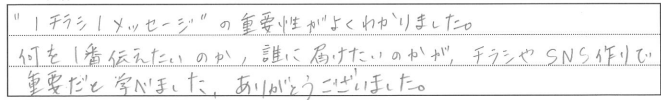 "1チラシ1メッセージ"の重要性がよくわかりました。
何を1番伝えたいのか,誰に届けたいのかが,チラシやSNS作りで
重要だと学べました,ありがとうございました。